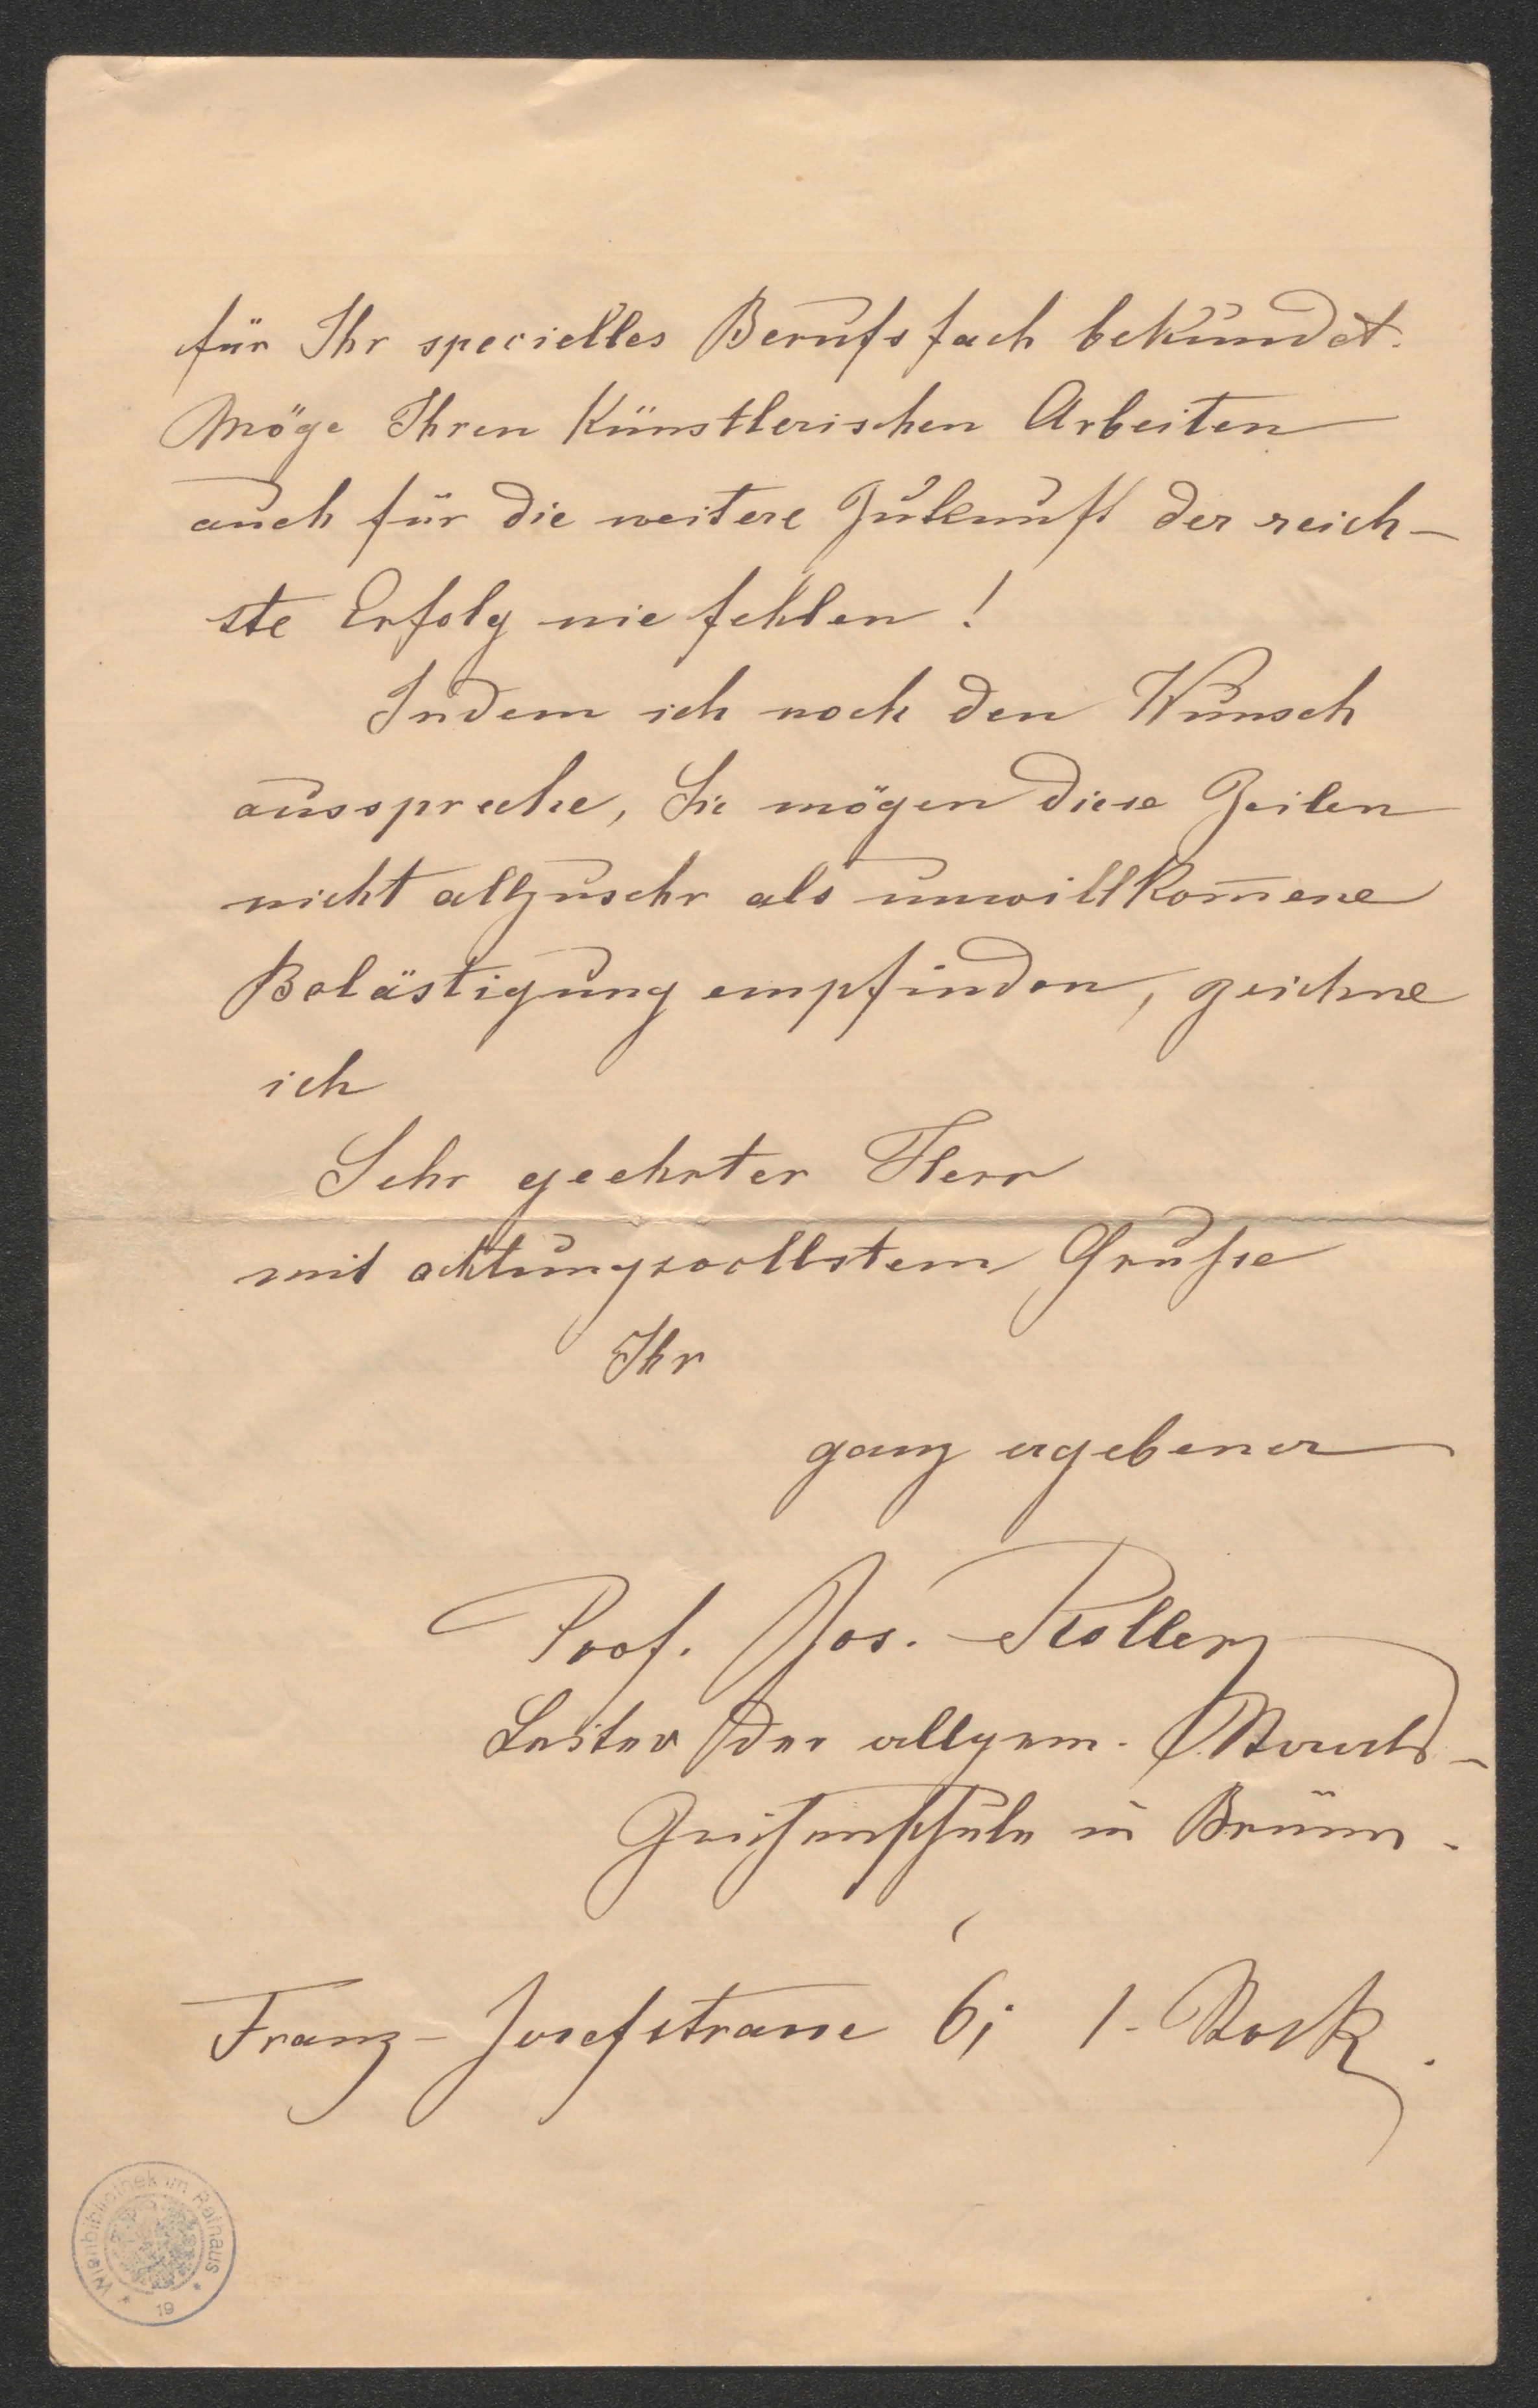 für Ihr specielles Berufsfach bekundet.
Möge Ihren künstlerischen Arbeiten
auch für die weitere Zukunft der reich-
ste Erfolg nie fehlen!
Indem ich noch den Wunsch
ausspreche, Sie mögen diese Zeilen
nicht allzusehr als unwillkom̅ene
Belästigung empfinden, zeichne
ich
Sehr geehrter Herr
mit achtungsvollstem Gruße
Ihr
ganz ergebener
Prof. Jos. Roller
Leiter der allgem. Staats-
Zeichenschule in Brünn.
Franz-Josefstrasse 6; 1. Stock.
Wienbibliothek im Rathaus
19